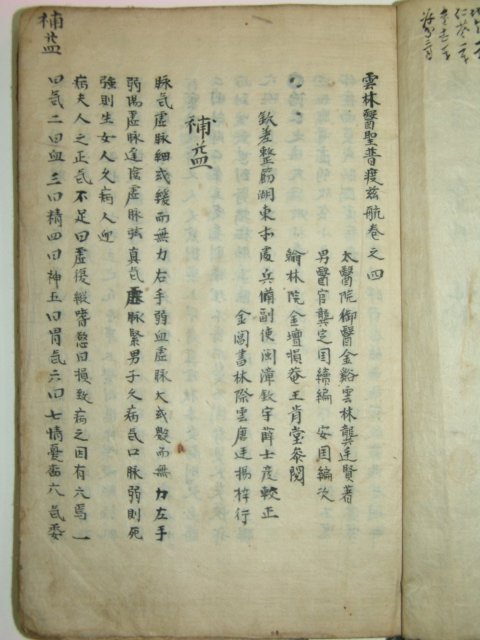 雲林醫聖普渡慈航卷之四
太醫院御醫金谿雲林龔廷賢著
男醫官龔定國續編 安國編次
翰林院金壇損菴王肯堂叅閱
欽差整飭湖東木處兵備副使閩漳欽宇薛士彦較正
金閶書林際雲唐廷揚梓行
補益
脉氣虛脉細或緩而無力右手弱血虛脉大或數而無力左手
弱陽虛脉遲陰虛脉弦真氣虛脉緊男子久病氣口脉弱則死
強則生女人久病人迎
病夫人之正氣不足曰虛後縱嗜慾曰損致病之因有六焉一
曰氣二曰血三曰精四曰神五曰胃氣六曰七情憂 六氣委
補益